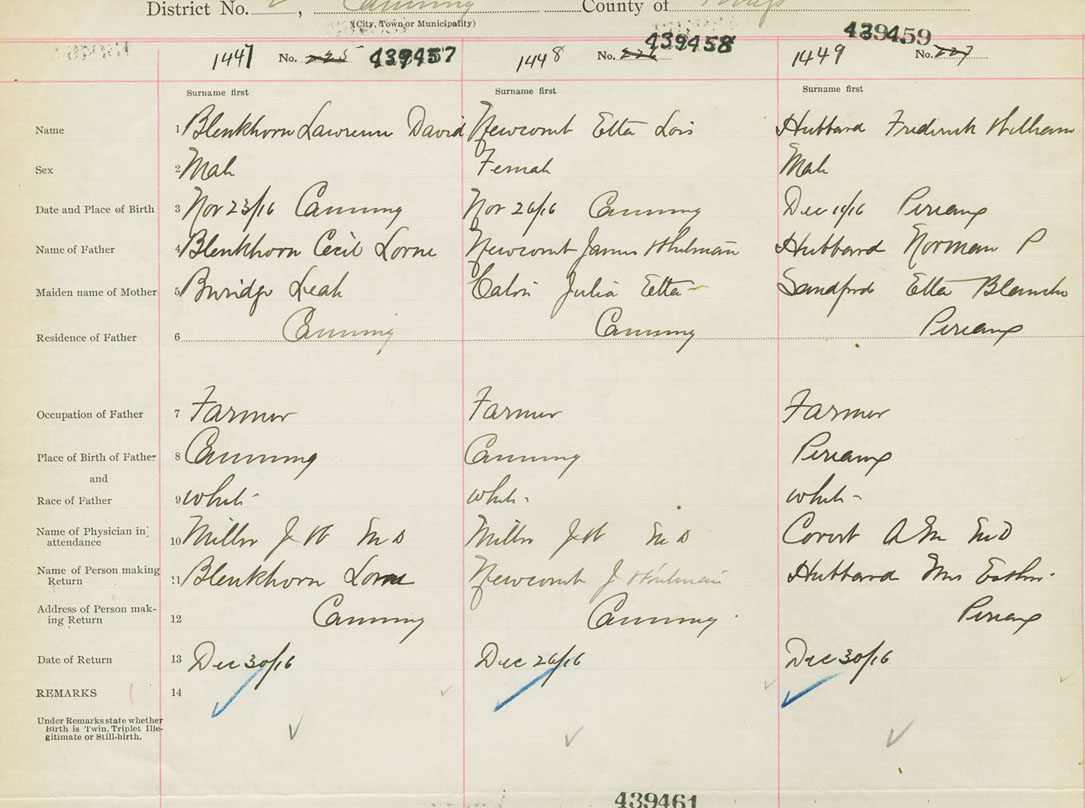 District No. , Canning County of Kings
(City, Town or Municipality)
1447 No. 225 439457 1448 No. 226 439458 1449 No. 227 439459
Surname first Surname first Surname first
Name 1 Blenkhorn Lawrence David Newcomb Etta Lois Hubbard Frederick William
Sex 2 Male Female Male
Date and Place of Birth 3 Nov 23/16 Canning Nov 26/16 Canning Dec /16 Pereaux
Name of Father 4 Blenkhorn Cecil Lorne Newcomb James Whitman Hubbard Norman P
Maiden name of Mother 5 Burridge Leah Julia Etta Sandford Etta Blanche
Residence of Father 6 Canning Canning Pereaux
Occupation of Father 7 Farmer Farmer Farmer
Place of Birth of Father 8 Canning Canning Pereaux
and
Race of Father 9 white white white
Name of Physician in attendance 10 Miller J W M D Miller J W M D Covert A M M D
Name of Person making Return 11 Blenkhorn Lorne Newcomb J Whitman Hubbard Mrs
Address of Person making Return 12 Canning Canning Pereaux
Date of Return 13 Dec 30/16 Dec 26/16 Dec 30/16
REMARKS 14
Under Remarks state whether
Birth is Twin, Triplet Ille-
gitimate or Still-birth.
439461